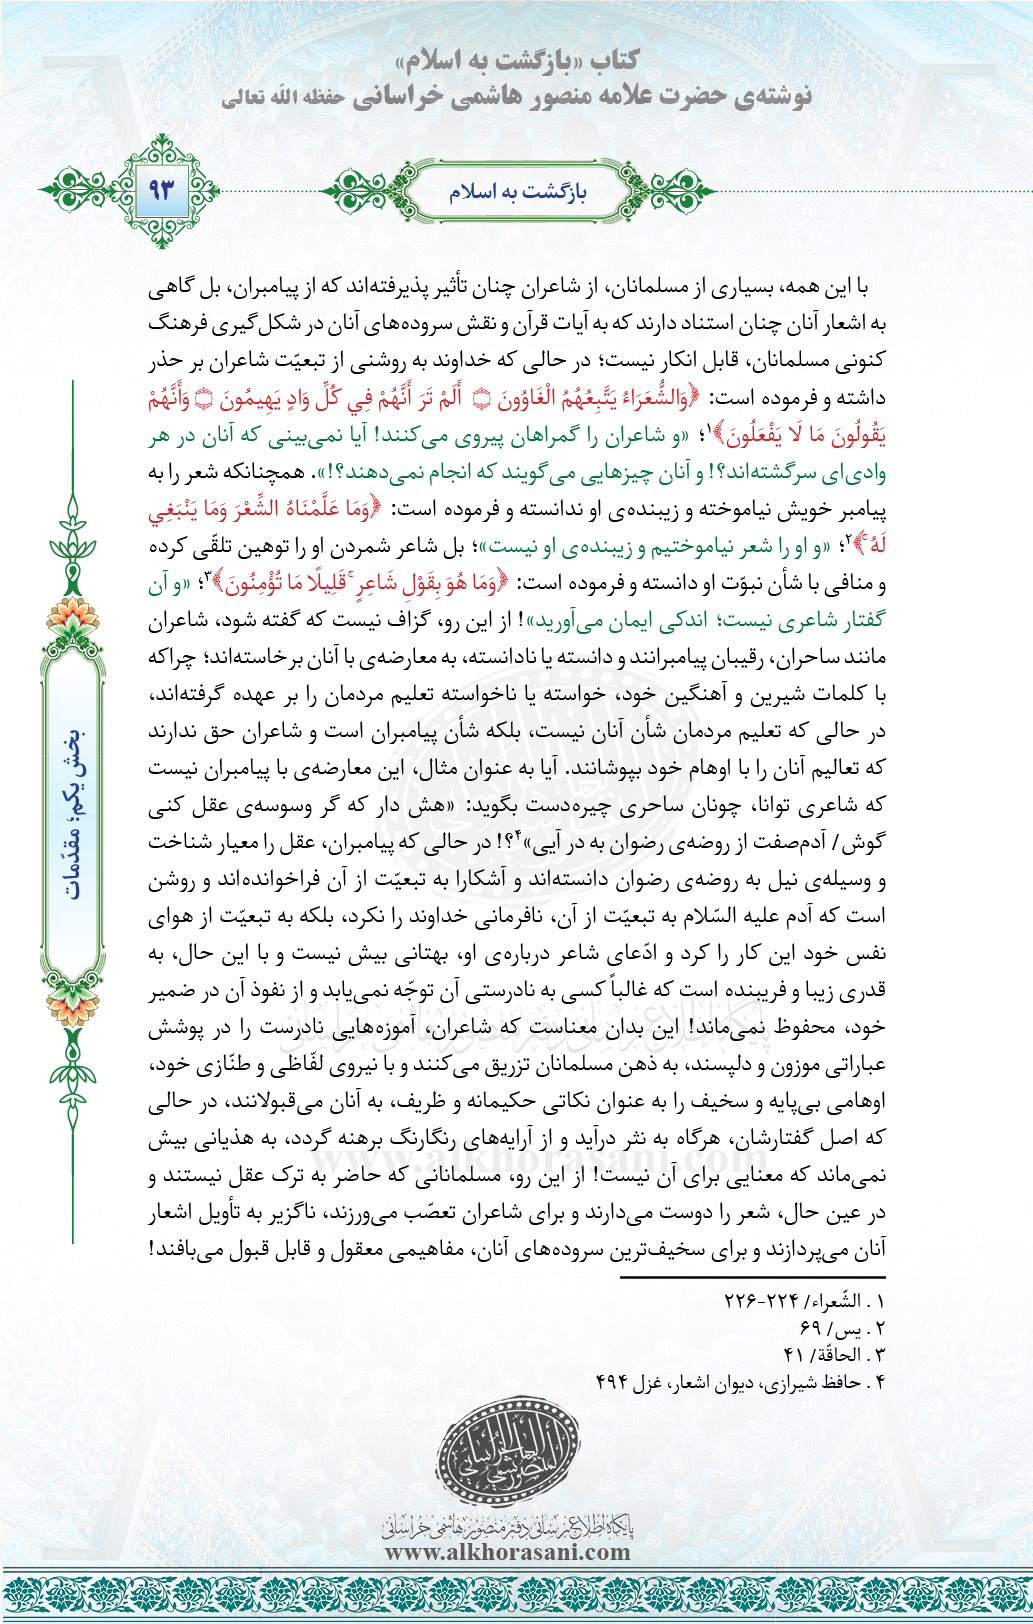 کتاب «بازگشت به اسلام»
نوشته‌ی حضرت علامه منصور هاشمی خراسانی حفظه الله تعالی
بازگشت به اسلام
۹۳
با این همه، بسیاری از مسلمانان، از شاعران چنان تأثیر پذیرفته‌اند که از پیامبران، بل گاهی
به اشعار آنان چنان استناد دارند که به آیات قرآن و نقش سروده‌های آنان در شکل‌گیری فرهنگ
کنونی مسلمانان، قابل انکار نیست؛ در حالی که خداوند به روشنی از تبعیّت شاعران بر حذر
داشته و فرموده است: ﴿وَالشُّعَرَاءُ يَتَّبِعُهُمُ الْغَاوُونَ ۝ أَلَمْ تَرَ أَنَّهُمْ فِي كُلِّ وَادٍ يَهِيمُونَ ۝ وَأَنَّهُمْ
يَقُولُونَ مَا لَا يَفْعَلُونَ﴾۱؛ «و شاعران را گمراهان پیروی می‌کنند! آیا نمی‌بینی که آنان در هر
وادی‌ای سرگشته‌اند؟! و آنان چیزهایی می‌گویند که انجام نمی‌دهند؟!». همچنانکه شعر را به
پیامبر خویش نیاموخته و زیبنده‌ی او ندانسته و فرموده است: ﴿وَمَا عَلَّمْنَاهُ الشِّعْرَ وَمَا يَنْبَغِي
لَهُ ۚ﴾۲؛ «و او را شعر نیاموختیم و زیبنده‌ی او نیست»؛ بل شاعر شمردن او را توهین تلقّی کرده
و منافی با شأن نبوّت او دانسته و فرموده است: ﴿وَمَا هُوَ بِقَوْلِ شَاعِرٍ ۚ قَلِيلًا مَا تُؤْمِنُونَ﴾۳؛ «و آن
گفتار شاعری نیست؛ اندکی ایمان می‌آورید»! از این رو، گزاف نیست که گفته شود، شاعران
مانند ساحران، رقیبان پیامبرانند و دانسته یا نادانسته، به معارضه‌ی با آنان برخاسته‌اند؛ چراکه
با کلمات شیرین و آهنگین خود، خواسته یا ناخواسته تعلیم مردمان را بر عهده گرفته‌اند،
در حالی که تعلیم مردمان شأن آنان نیست، بلکه شأن پیامبران است و شاعران حق ندارند
که تعالیم آنان را با اوهام خود بپوشانند. آیا به عنوان مثال، این معارضه‌ی با پیامبران نیست
که شاعری توانا، چونان ساحری چیره‌دست بگوید: «هش دار که گر وسوسه‌ی عقل کنی
گوش/ آدم‌صفت از روضه‌ی رضوان به در آیی»۴؟! در حالی که پیامبران، عقل را معیار شناخت
و وسیله‌ی نیل به روضه‌ی رضوان دانسته‌اند و آشکارا به تبعیّت از آن فراخوانده‌اند و روشن
است که آدم علیه السّلام به تبعیّت از آن، نافرمانی خداوند را نکرد، بلکه به تبعیّت از هوای
نفس خود این کار را کرد و ادّعای شاعر درباره‌ی او، بهتانی بیش نیست و با این حال، به
قدری زیبا و فریبنده است که غالباً کسی به نادرستی آن توجّه نمی‌یابد و از نفوذ آن در ضمیر
خود، محفوظ نمی‌ماند! این بدان معناست که شاعران، آموزه‌هایی نادرست را در پوشش
عباراتی موزون و دلپسند، به ذهن مسلمانان تزریق می‌کنند و با نیروی لفّاظی و طنّازی خود،
اوهامی بی‌پایه و سخیف را به عنوان نکاتی حکیمانه و ظریف، به آنان می‌قبولانند، در حالی
که اصل گفتارشان، هرگاه به نثر درآید و از آرایه‌های رنگارنگ برهنه گردد، به هذیانی بیش
نمی‌ماند که معنایی برای آن نیست! از این رو، مسلمانانی که حاضر به ترک عقل نیستند و
در عین حال، شعر را دوست می‌دارند و برای شاعران تعصّب می‌ورزند، ناگزیر به تأویل اشعار
آنان می‌پردازند و برای سخیف‌ترین سروده‌های آنان، مفاهیمی معقول و قابل قبول می‌بافند!
بخش یکم؛ مقدّمات
۱ . الشّعراء/ ۲۲۴-۲۲۶
۲ . یس/ ۶۹
۳ . الحاقّة/ ۴۱
۴ . حافظ شیرازی، دیوان اشعار، غزل ۴۹۴
پایگاه اطلاع‌رسانی دفتر منصور هاشمی خراسانی
www.alkhorasani.com